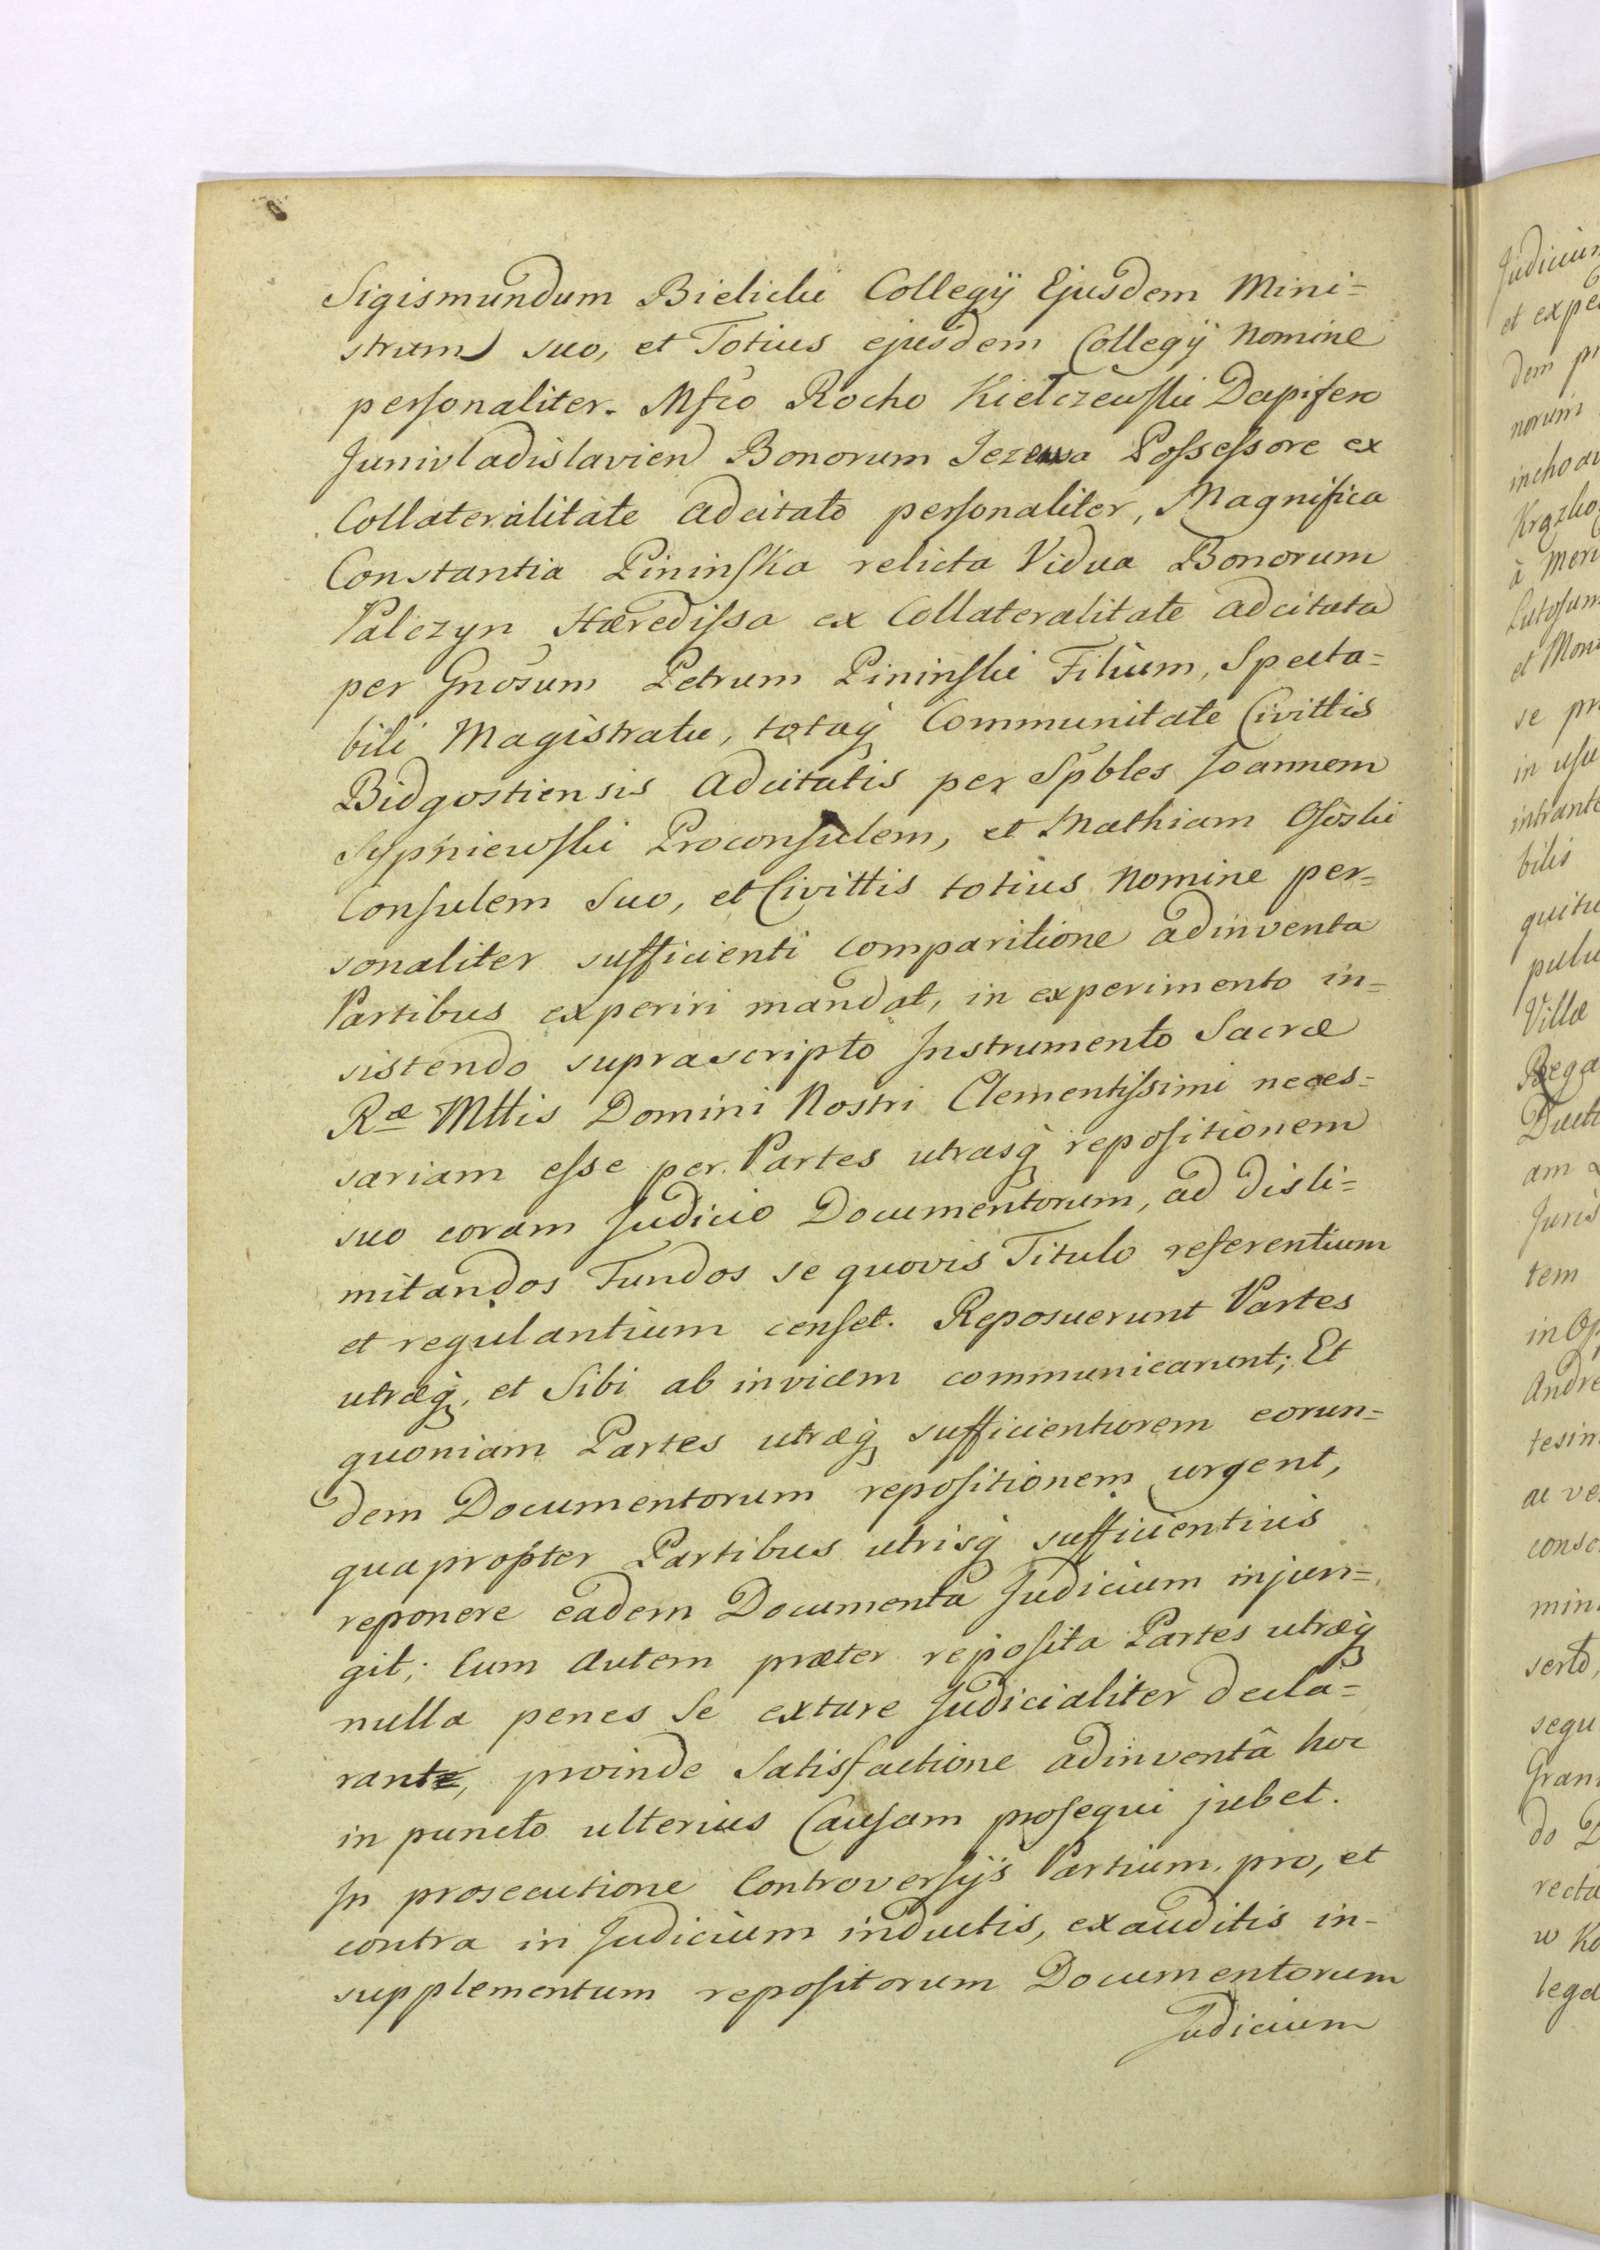 Sigismundum Bielicki Collegÿ Ejusdem Mini=
strum suo, et Totius ejusdem Collegÿ Nomine
personaliter. Mfco Rocho Kiełczewski Dapifero
Junivladislavien Bonorum Jezewa Possessore ex
Collateralitate adcitato personaliter, Magnifica
Constantia Pininska relicta Vidua Bonorum
Palczyn Hæredissa ex Collateralitate adcitata
per Gnosum Petrum Pininski Filium, Specta=
bili Magistratu, totaq Communitate Civittis
Bidgostiensis adcitatis per Spbles Joannem
Sypniewski Proconsulem, et Mathiam Ososki
Consulem Suo, et Civittis totius Nomine per=
sonaliter sufficienti comparitione adinventa
Partibus experiri mandat, in experimento in=
sistendo suprascripto Instrumento Sacræ
Ræ Mttis Domini Nostri Clementissimi neces=
sariam esse per Partes utrasq repositionem
suo coram Judicio Documentorum, ad disli=
mitandos Fundos se quovis Titulo referentium
et regulantium censet. Reposuerunt Partes
utræq, et Sibi ab invicem communicarunt; Et
quoniam Partes utræq sufficientiorem eorun=
dem Documentorum repositionem urgent,
quapropter Partibus utrisq sufficientius
reponere eadem Documenta Judicium injun=
git; Cum autem præter reposita Partes utræq
nulla penes Se extare Judicialiter decla=
rant, proinde Satisfactione adinventâ hoc
in puncto ulterius Causam prosequi jubet.
In prosecutione Controversÿs Partium, pro, et
contra in Judicium inductis, exauditis in=
supplementum repositorum Documentorum
Judicium